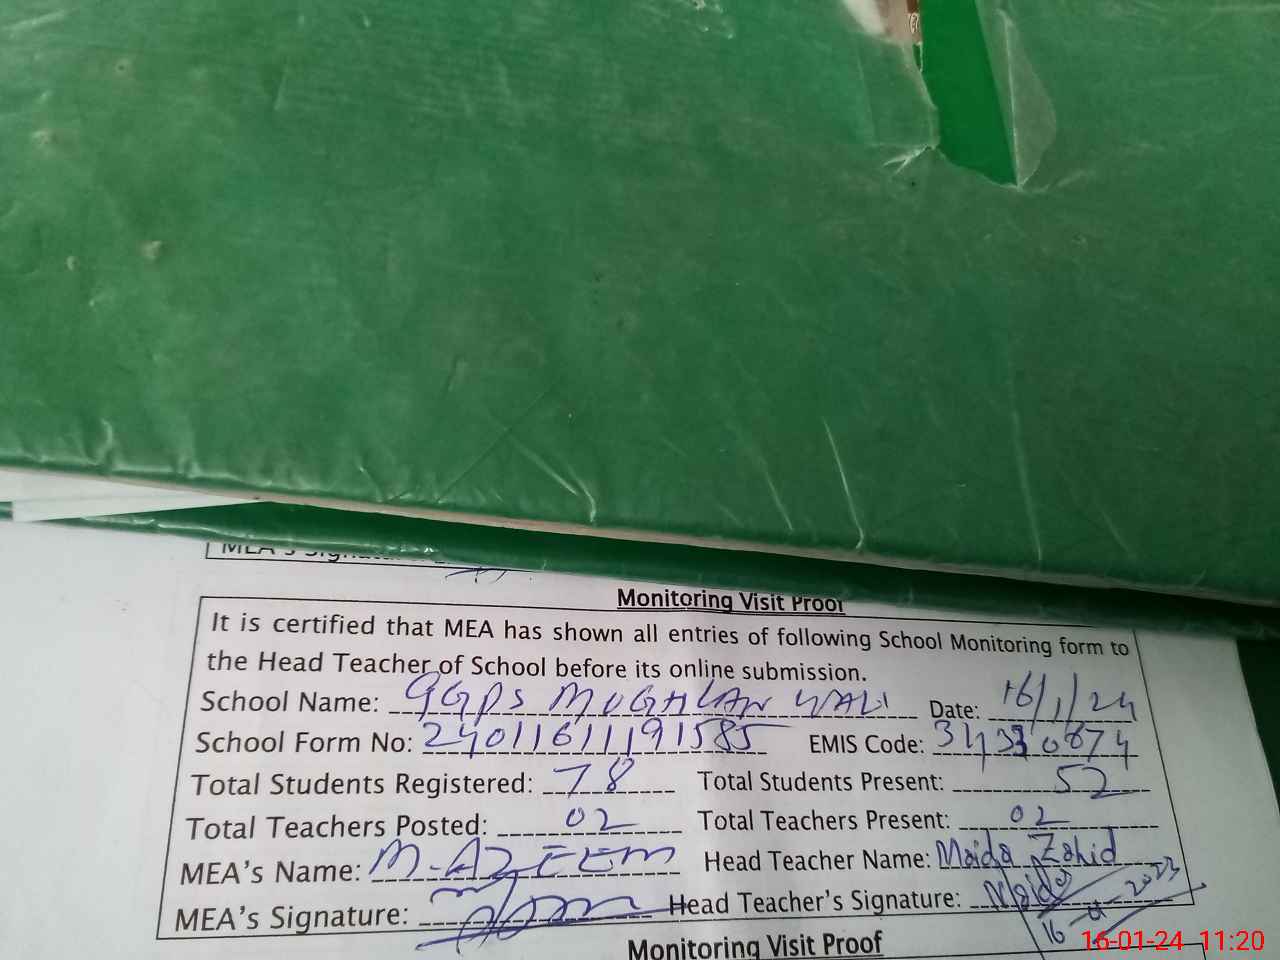 MEA's Signat
Monitoring Visit Proof
It is certified that MEA has shown all entries of following School Monitoring form to
the Head Teacher of School before its online submission.
School Name: GGPS MUGHLAN WALI Date: 16/1/24
School Form No: 24011611191585 EMIS Code: 34330874
Total Students Registered: 78 Total Students Present: 52
Total Teachers Posted: 02 Total Teachers Present: 02
MEA's Name: M-AZEEM Head Teacher Name: Maida Zahid
MEA's Signature: Head Teacher's Signature: Maida
16 2023
16-01-24 11:20
Monitoring Visit Proof